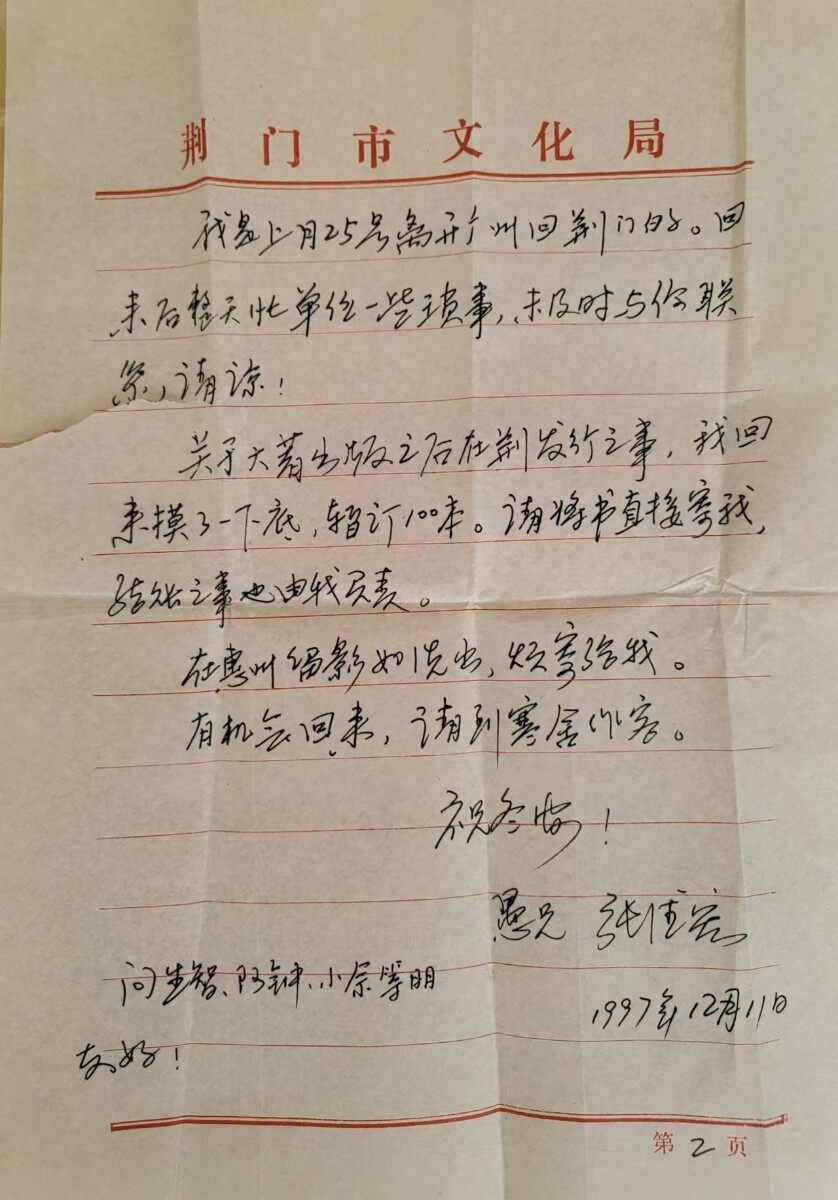 荆门市文化局
我是上月25号离开广州回荆门的。回
来后整天忙单位一些琐事，未及时与你联
系，请谅！
关于大著出版之后在荆发行之事，我回
来摸了一下底，暂订100本。请将书直接寄我，
结账之事也由我负责。
在惠州留影如洗出，烦寄给我。
有机会回来，请到寒舍作客。
祝冬安！
愚兄 张佳
问生智、阿钟、小余等朋
友好！
1997年12月11日
第2页